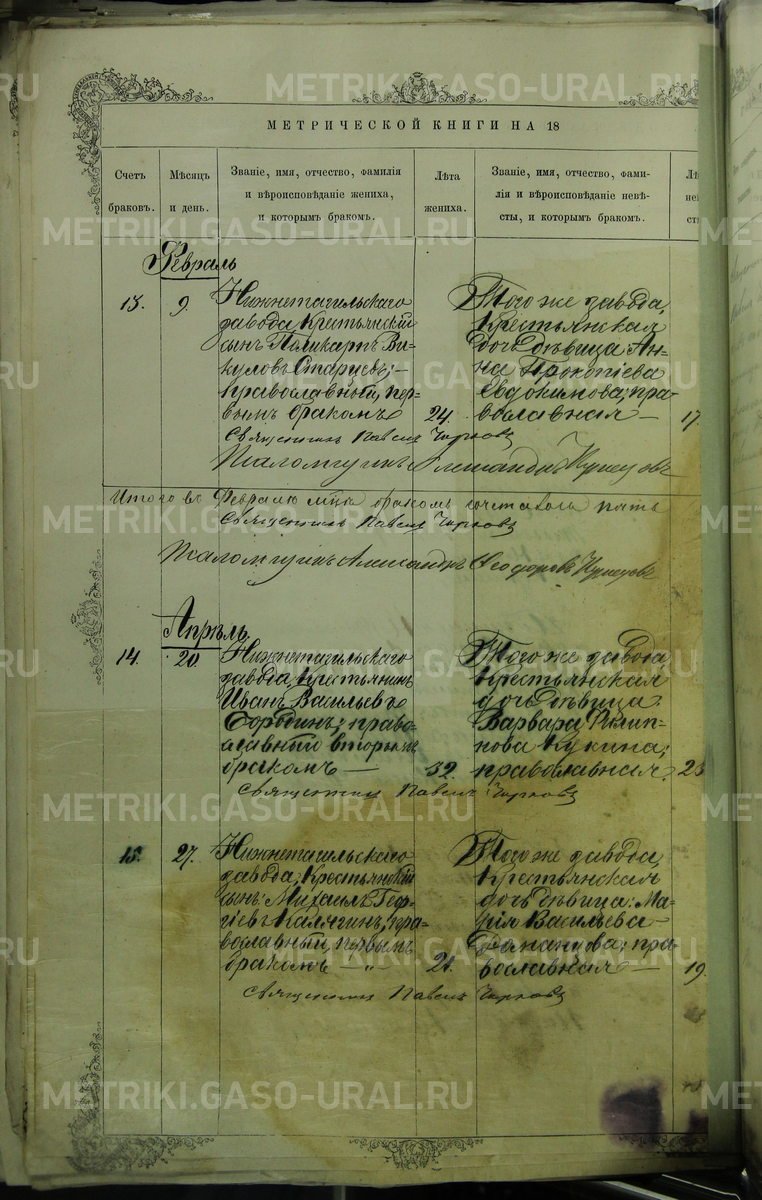 METRIKI.GASO-URAL.RU
МЕТРИЧЕСКОЙ КНИГИ НА 18
Счетъ браковъ.
Мѣсяцъ и день.
Званіе, имя, отчество, фамилія
и вѣроисповѣданіе жениха,
и которымъ бракомъ.
Лѣта жениха.
Званіе, имя, отчество, фами-
лія и вѣроисповѣданіе невѣ-
сты, и которымъ бракомъ.
Февраль
13.
9.
Нижнетагильскаго
завода, Крестьянскій
сынъ Поликарпъ Ви-
куловъ Старцевъ; –
православный, пер-
вымъ бракомъ
24.
Того же завода,
Крестьянская
дочь дѣвица Ан-
на Прокопіева
Евдокимова; пра-
вославная —
17.
Священникъ Павелъ
Александръ
Итого въ Февралѣ мцѣ бракомъ сочеталось пять
Священникъ Павелъ
Александръ Ѳеодоровъ
Апрѣль.
14.
20
Нижнетагильскаго
завода, Крестьянинъ
Иванъ Васильевъ
православный вторымъ
бракомъ —
52.
Того же завода,
Крестьянская
дочь дѣвица:
Варвара Филип-
пова Кукина;
православная.
23
Священникъ Павелъ
METRIKI.GASO-URAL.RU
15.
27.
Нижнетагильскаго
завода; Крестьянскій
сынъ: Михаилъ Геор-
гіевъ Калягинъ, пра-
вославный, первымъ
бракомъ — „
21.
Того же завода,
Крестьянская
дочь дѣвица: Ма-
рія Васильева
пра-
вославная —
19.
Священникъ Павелъ
METRIKI.GASO-URAL.RU